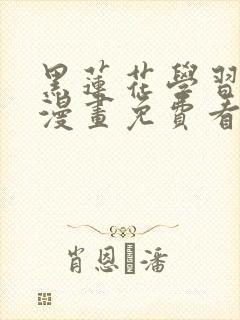 黑蓮花學習
漫畫免費看
肖恩潘